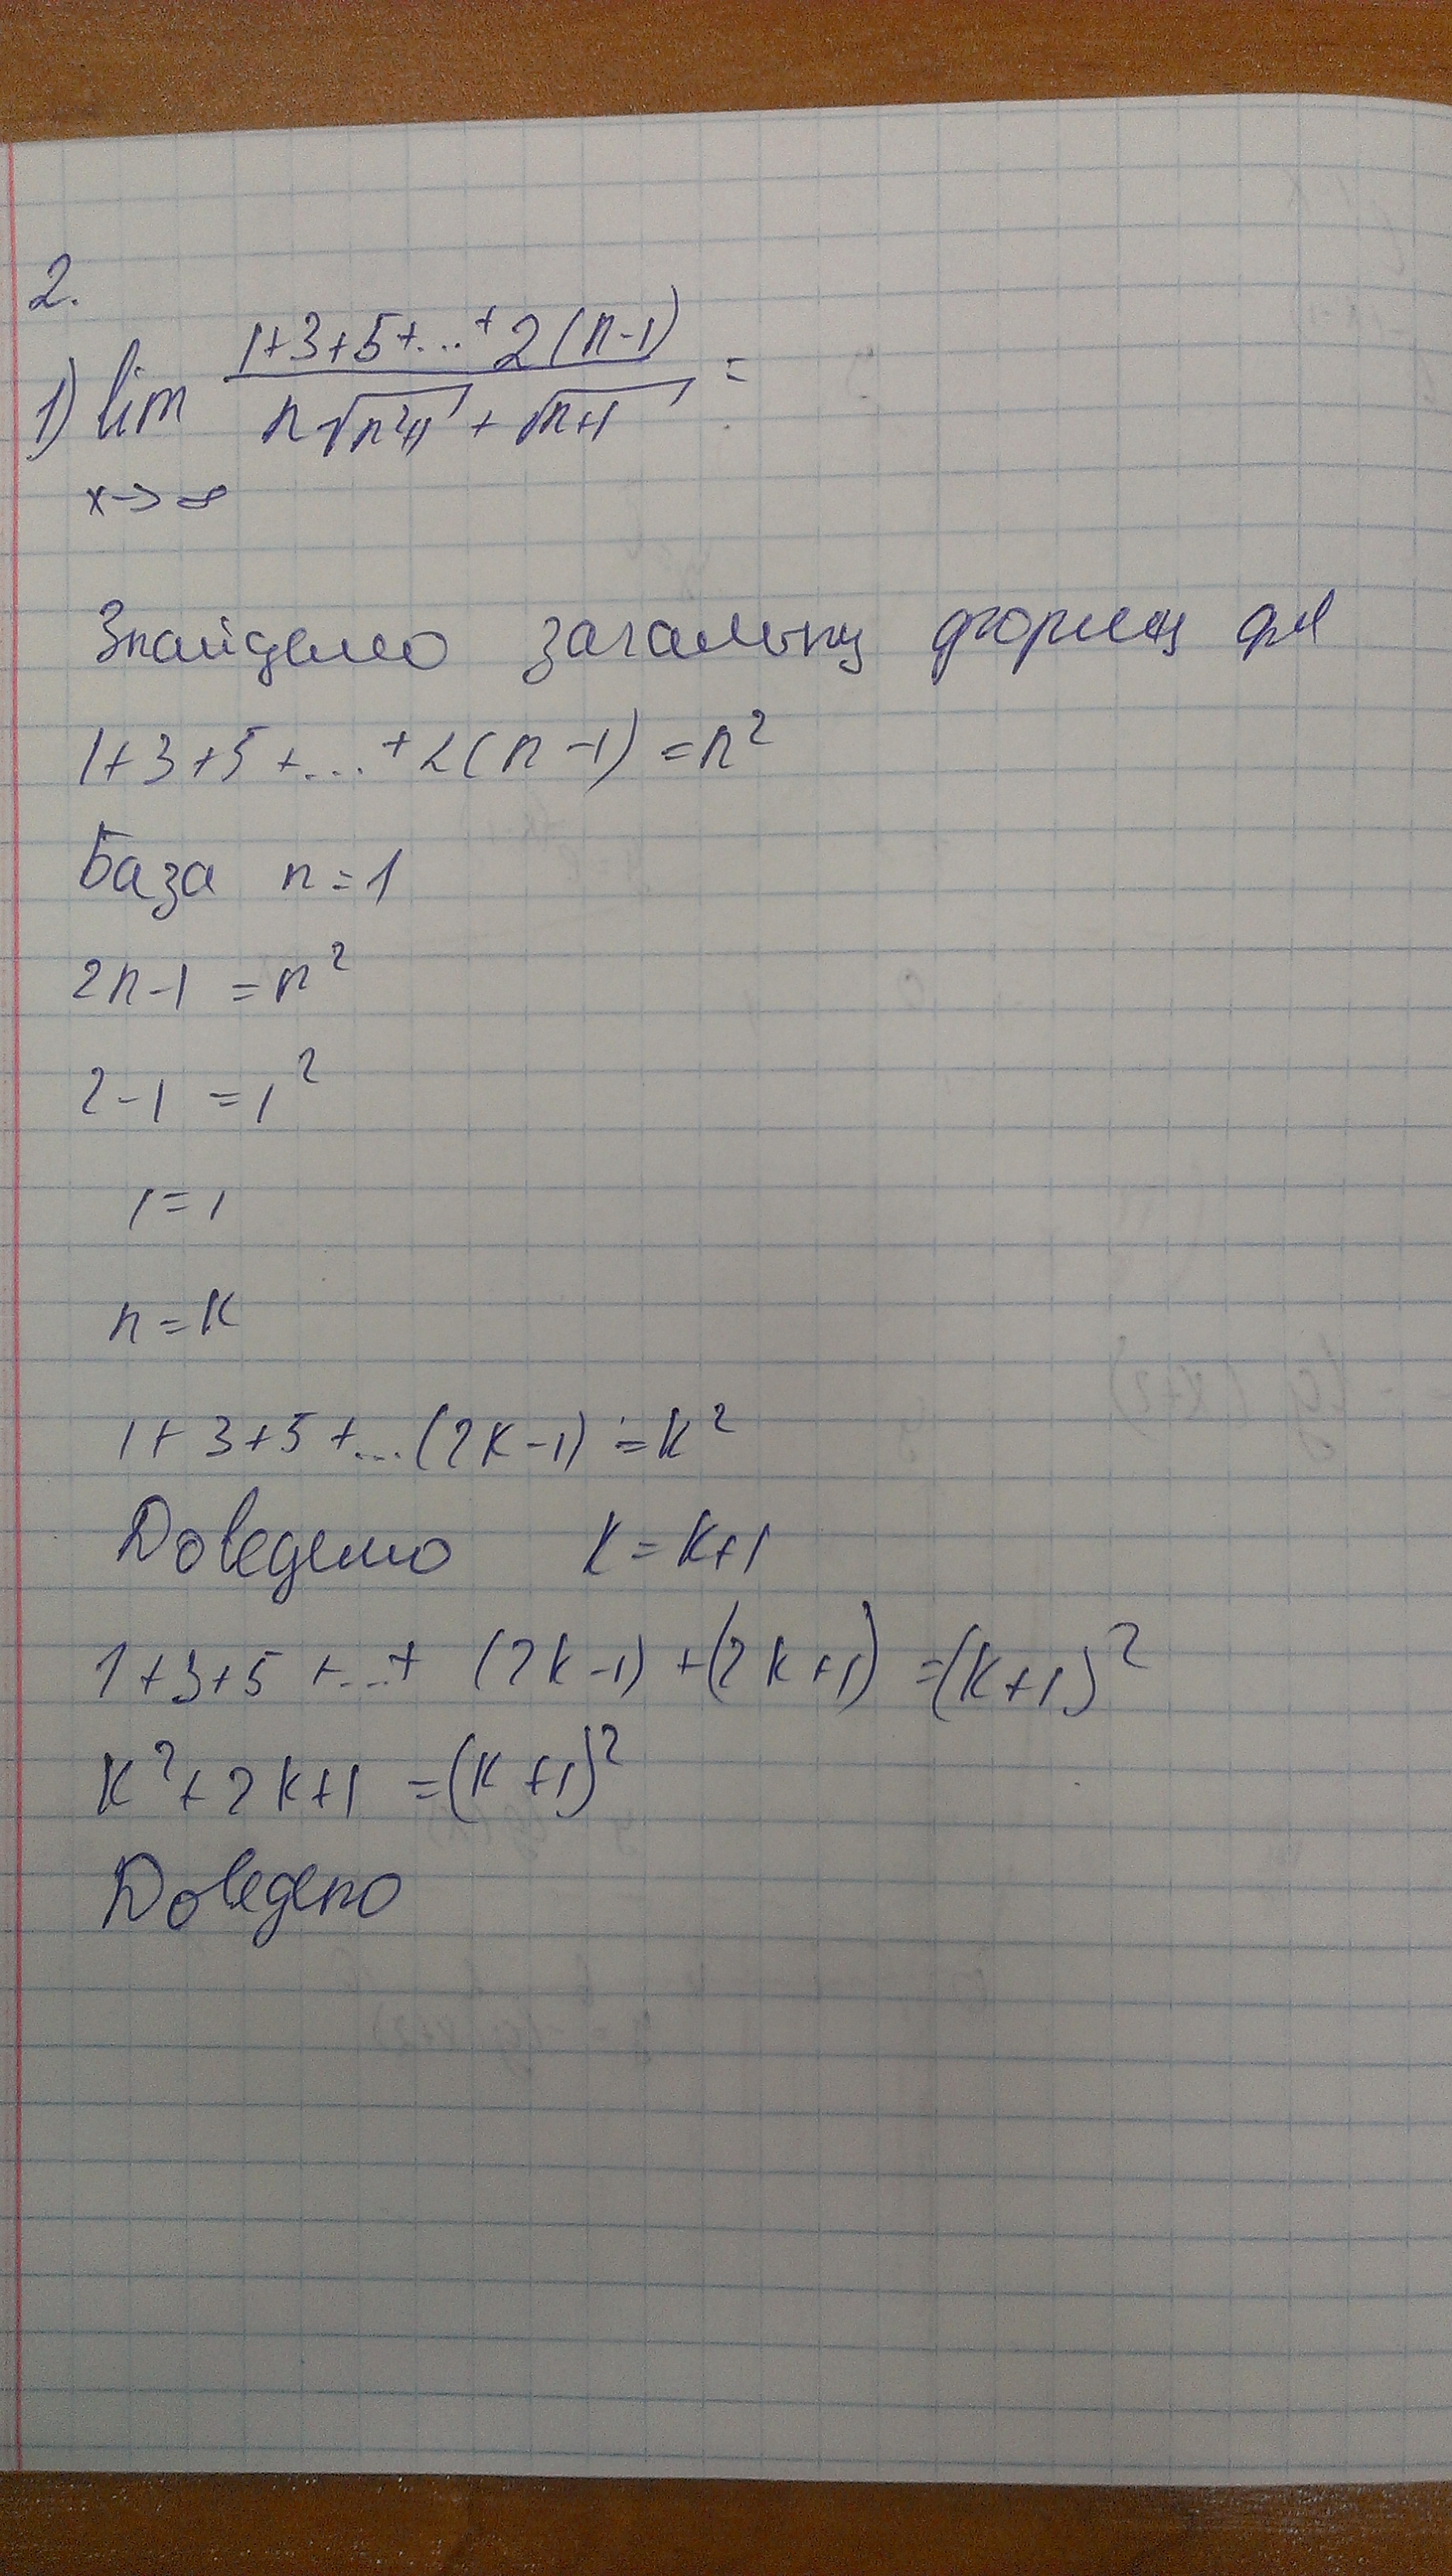 2.
1) lim (1+3+5+...+2(n-1))/(n√(n²+1) + √(n+1)) =
x→∞
Знайдемо загальну форму для
1+3+5+...+2(n-1)=n²
База n=1
2n-1=n²
2-1=1²
1=1
n=k
1+3+5+...(2k-1)=k²
Доведемо k=k+1
1+3+5+...+(2k-1)+(2k+1)=(k+1)²
k²+2k+1=(k+1)²
Доведено